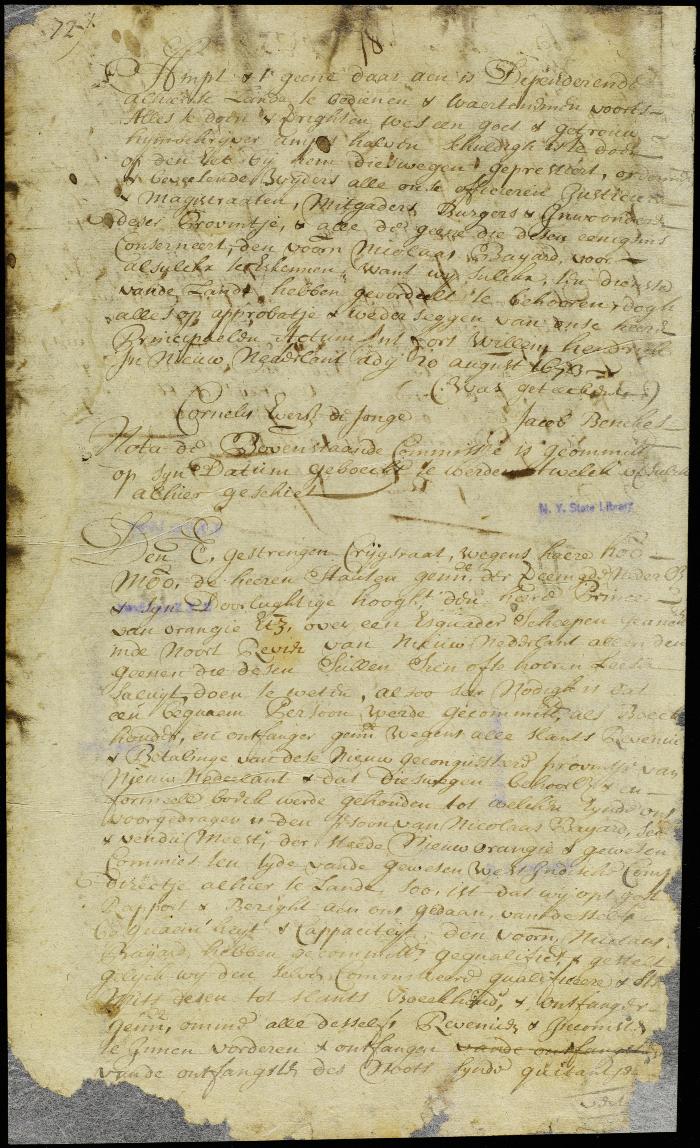 72
18
Ampt & 't geene daar aen is Dependerende
alhier te Lande te bedienen & waertenemen voorts
alles te doen & verrighten wes een goet & getrouw
schuldigh is te doen
op den Eet by hem dieswegen gepresteert,
bevelende Wyders alle onse officieren Justicieren
& Magistraaten, Mitgaders Burgers & Inwoonders
deser Provintje, & alle de geene die desen eenigsins
Conserneert, den voorn Nicolaas Bayard, voor
alsulckx te Erkennen, Want wy sulcx, ten dienste
vande Lande hebben geoordeelt te behooren, dogh
alles op approbatje & weder seggen van onse heeren
Principaelen Actum Int fort Willem hendrick
In Nieuw Nederlant ady 20 august 1673
(Was geteeckent)
Cornelis Everts de Jonge Jacob Benckes
Nota de Bovenstaande Commissie is gecommitt
op syn Datum geboeckt te werden welck
alhier geschiet
N. Y. State Library
Den E. Gestrengen Crijgsraat, wegens heere hoo
Moo. de heeren Staaten genn. der Vereenigde Neder
& syn Doorlughtige hooght. den heere Prince
van orangie Etz, over een Esquader Scheepen
inde Noort Revier van Nieuw Nederlant alle den
geenen die desen Sullen Sien ofte hooren Leesen
saluyt doen te weten, alsoo seer Nodigh is dat
een bequaem Persoon werde gecommitt, als Boeck
houder, en ontfanger genn wegens alle slants Revenue
& Betalinge van dese Nieuw geconquesteerde provintje van
Nieuw Nederlant & dat dieswegen behoorlyk en
formeele boeck werde gehouden tot welcken Eynde ons
voorgedragen is den psoon van Nicolaas Bayard, Secr
& vendu Meestr. der Steede Nieuw orangie & gewesen
Commies ten tyde vande gewesen West Indische Comp
Directje alhier te Lande Soo, ist dat wy opt goet
Rapport & Beright aen ons gedaan, van desselfs
Bequaemheyt & Cappaciteyt, den voorn. Nicolaas
Bayard, hebben gecommitt. gequalific. & gestelt
gelyck wy den selven Commiteeren qualificeere &
Mits desen tot slants Boeckhoudr, & ontfanger
genn, omme alle desselfs Revenues & Incomsten
te Innen vorderen & ontfangen vande ontfangst
vande ontfangst des Noots synde quitantie